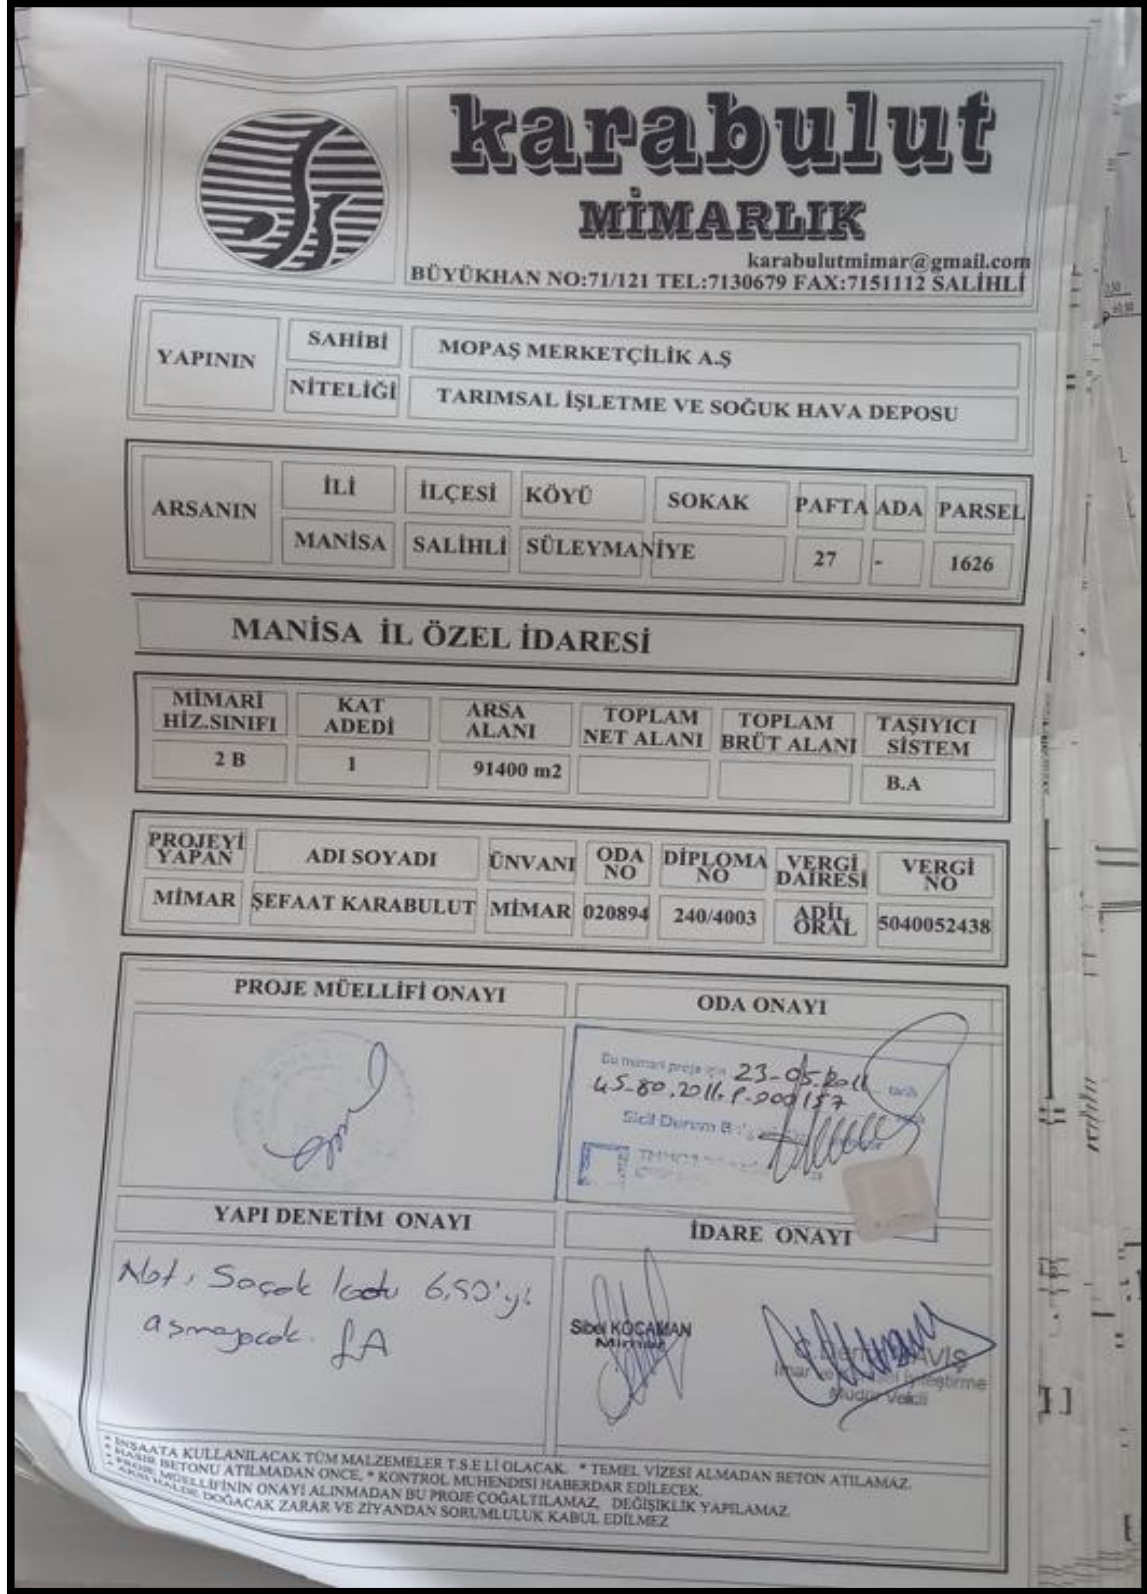 karabulut
MİMARLIK
karabulutmimar@gmail.com
BÜYÜKHAN NO:71/121 TEL:7130679 FAX:7151112 SALİHLİ
YAPININ
SAHİBİ
MOPAŞ MERKETÇİLİK A.Ş
NİTELİĞİ
TARIMSAL İŞLETME VE SOĞUK HAVA DEPOSU
ARSANIN
İLİ İLÇESİ KÖYÜ SOKAK PAFTA ADA PARSEL
MANİSA SALİHLİ SÜLEYMANİYE 27 - 1626
MANİSA İL ÖZEL İDARESİ
MİMARİ HİZ.SINIFI
KAT ADEDİ
ARSA ALANI
TOPLAM NET ALANI
TOPLAM BRÜT ALANI
TAŞIYICI SİSTEM
2 B 1 91400 m2 B.A
PROJEYİ YAPAN
ADI SOYADI
ÜNVANI
ODA NO
DİPLOMA NO
VERGİ DAİRESİ
VERGİ NO
MİMAR ŞEFAAT KARABULUT MİMAR 020894 240/4003 ADİL ORAL 5040052438
PROJE MÜELLİFİ ONAYI
ODA ONAYI
Bu mimari proje için 23-05.2011 tarih
45-80.2011.P.000157
Sicil Durum
YAPI DENETİM ONAYI
İDARE ONAYI
Not, Saçak kotu 6,50'yi
aşmayacak.
Sibel KOCAMAN
Mimar
İmar
Müdür Vekili
* İNŞAATA KULLANILACAK TÜM MALZEMELER T.S.E Lİ OLACAK. * TEMEL VİZESİ ALMADAN BETON ATILAMAZ.
* HASIR BETONU ATILMADAN ONCE, * KONTROL MUHENDISI HABERDAR EDİLECEK.
* PROJE MÜELLİFİNİN ONAYI ALINMADAN BU PROJE ÇOĞALTILAMAZ, DEĞİŞİKLİK YAPILAMAZ.
* AKSİ HALDE DOĞACAK ZARAR VE ZİYANDAN SORUMLULUK KABUL EDİLMEZ